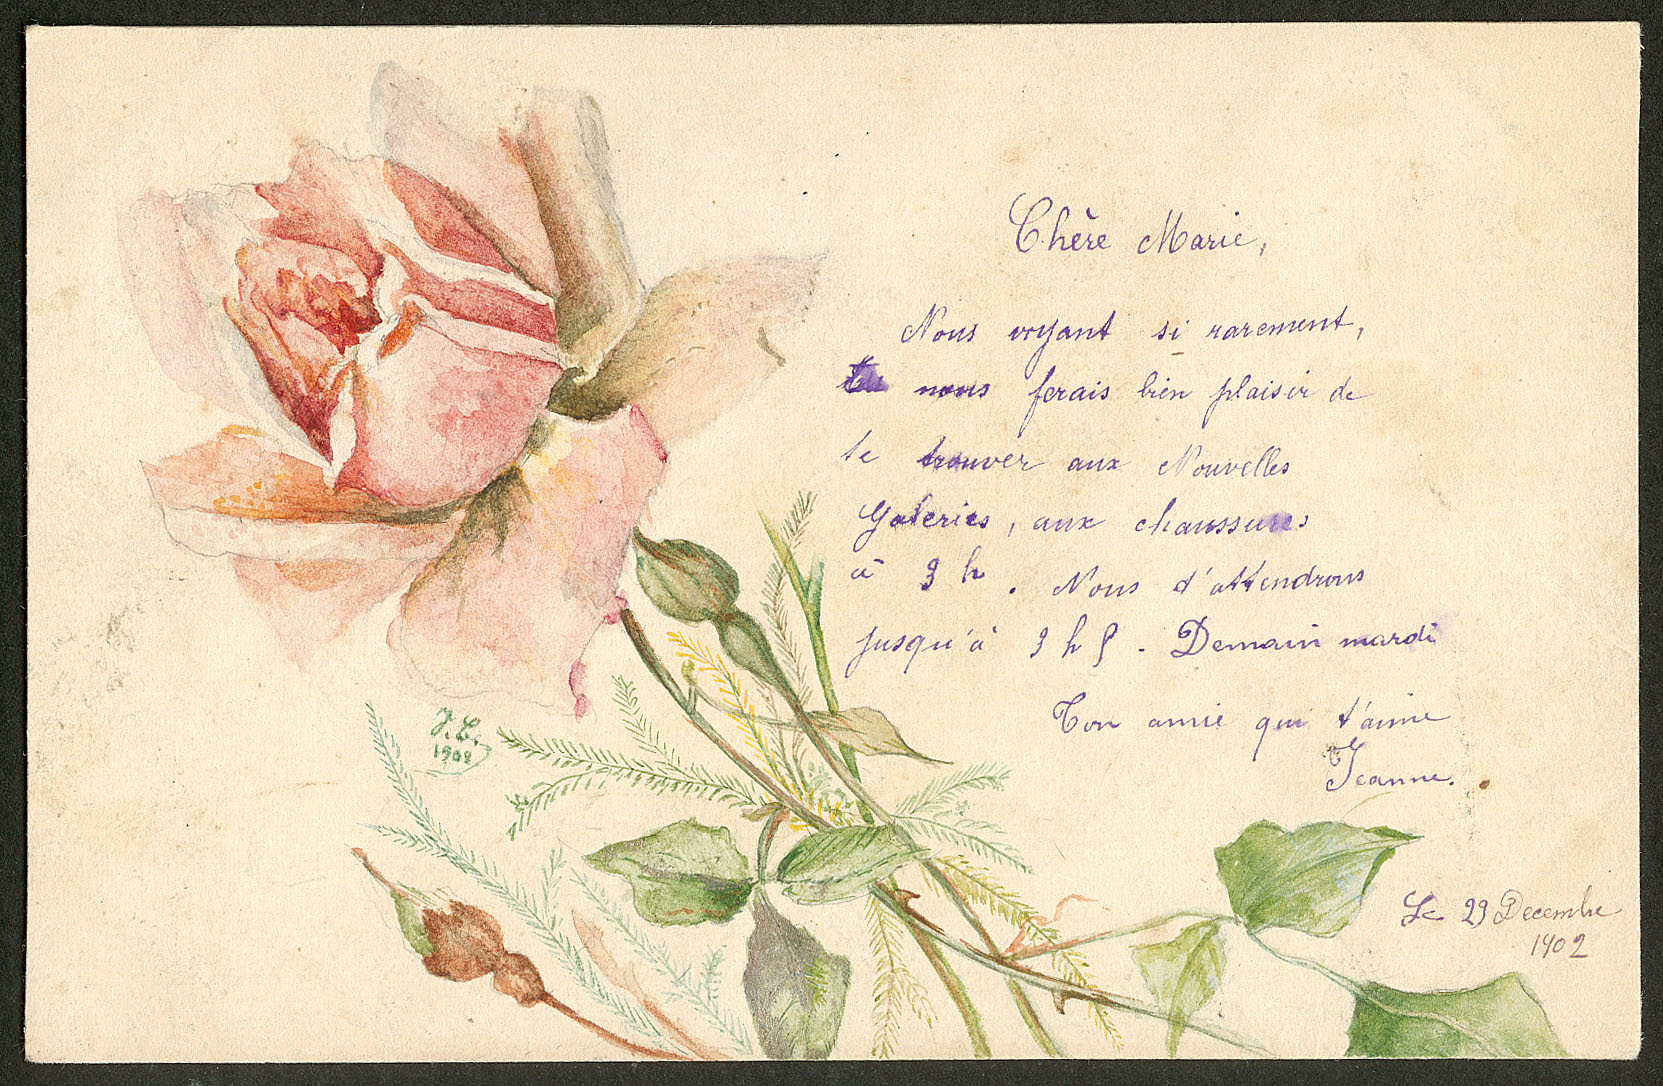 Chère Marie,
Nous voyant si rarement,
tu nous ferais bien plaisir de
te trouver aux Nouvelles
Galeries, aux chaussures
à 3 h. Nous t'attendrons
jusqu'à 3 h ½. Demain mardi
Ton amie qui t'aime
Jeanne.
J.C.
1902
Le 29 Decembre
1902